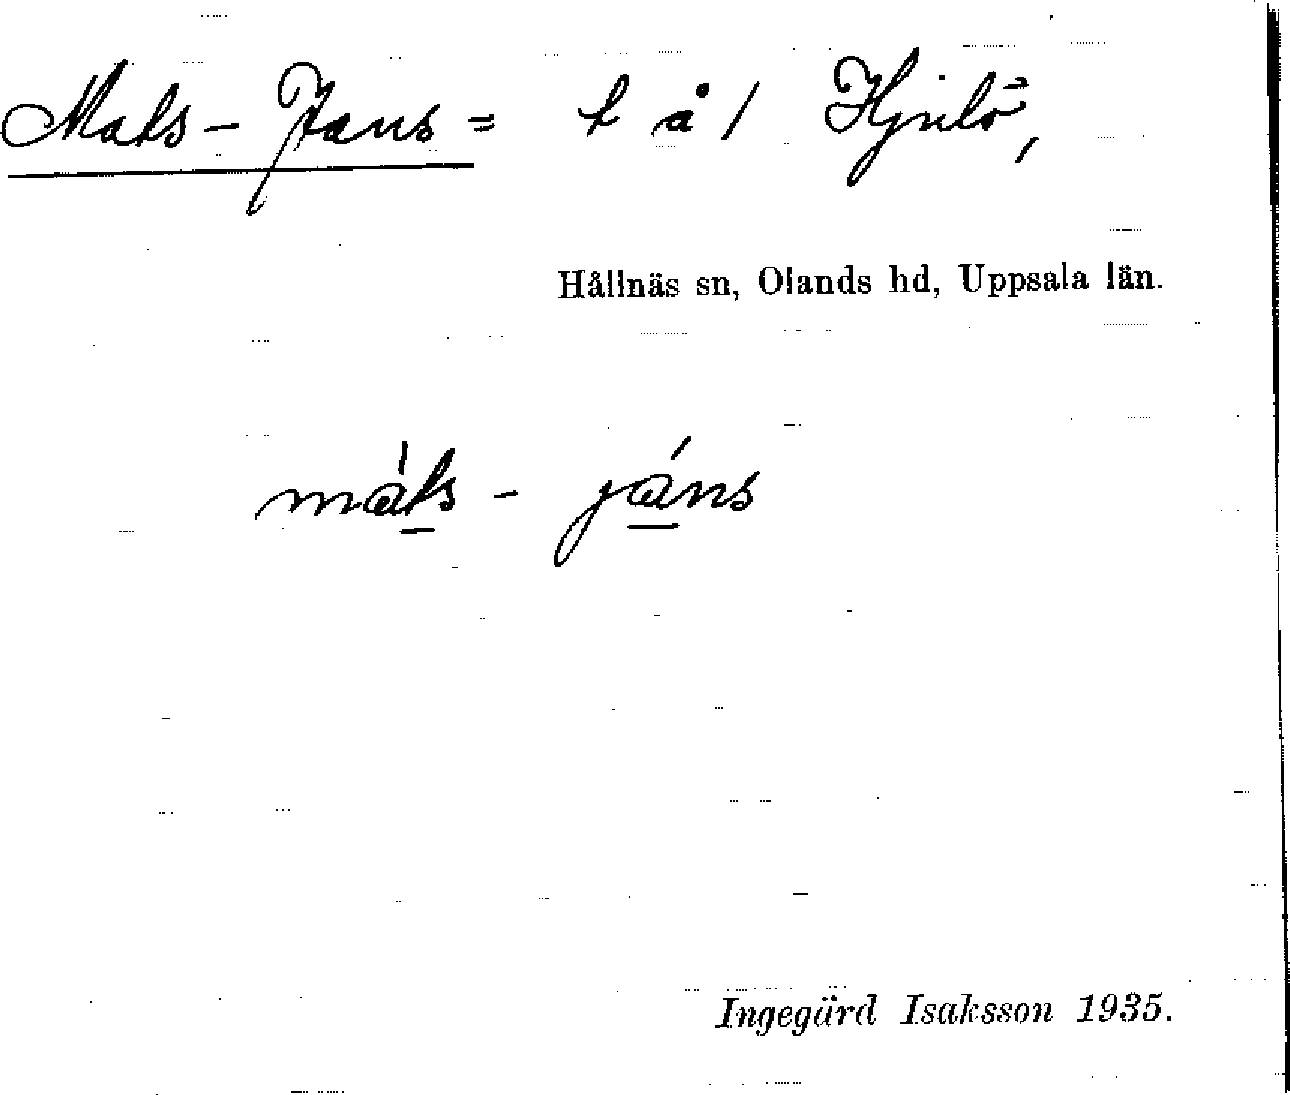 Mats-Jans= t å/ Hjälö,
Hållnäs sn, Olands hd, Uppsala län.
màts - jáns
Ingegärd Isaksson 1935.